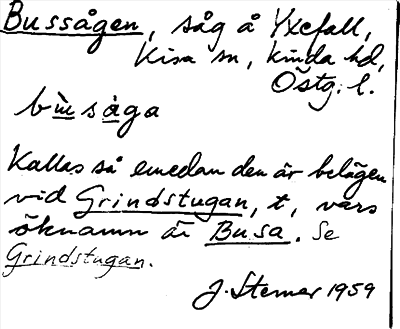 Bussågen, såg å Yxefall,
Kisa sn, Kinda hd,
Östg. l.
bu̇̀sȧga
Kallas så emedan den är belägen
vid Grindstugan, t, vars
öknamn är Busa. Se
Grindstugan.
J. Sterner 1959